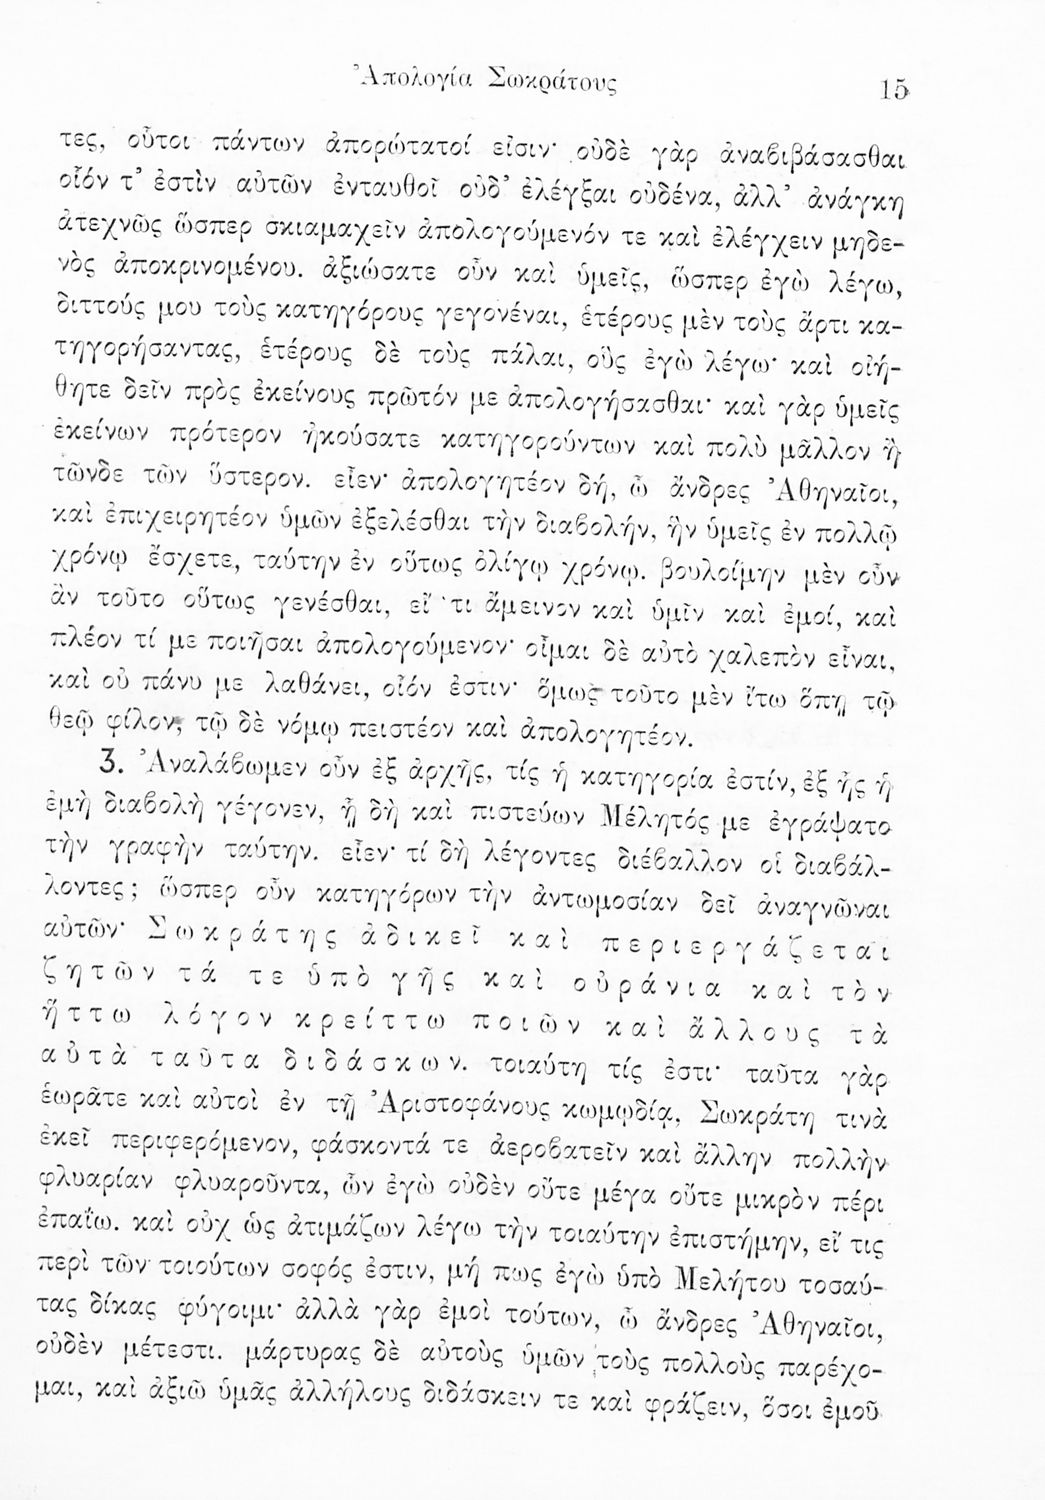 Ἀπολογία Σωκράτους 15
τες, οὗτοι πάντων ἀπορώτατοί εἰσιν· οὐδὲ γὰρ ἀναβιβάσασθαι
οἷόν τ’ ἐστὶν αὐτῶν ἐνταυθοῖ οὐδ’ ἐλέγξαι οὐδένα, ἀλλ’ ἀνάγκη
ἀτεχνῶς ὥσπερ σκιαμαχεῖν ἀπολογούμενόν τε καὶ ἐλέγχειν μηδε-
νὸς ἀποκρινομένου. ἀξιώσατε οὖν καὶ ὑμεῖς, ὥσπερ ἐγὼ λέγω,
διττούς μου τοὺς κατηγόρους γεγονέναι, ἑτέρους μὲν τοὺς ἄρτι κα-
τηγορήσαντας, ἑτέρους δὲ τοὺς πάλαι, οὓς ἐγὼ λέγω· καὶ οἰή-
θητε δεῖν πρὸς ἐκείνους πρῶτόν με ἀπολογήσασθαι· καὶ γὰρ ὑμεῖς
ἐκείνων πρότερον ἠκούσατε κατηγορούντων καὶ πολὺ μᾶλλον ἢ
τῶνδε τῶν ὕστερον. εἶεν· ἀπολογητέον δή, ὦ ἄνδρες Ἀθηναῖοι,
καὶ ἐπιχειρητέον ὑμῶν ἐξελέσθαι τὴν διαβολήν, ἣν ὑμεῖς ἐν πολλῷ
χρόνῳ ἔσχετε, ταύτην ἐν οὕτως ὀλίγῳ χρόνῳ. βουλοίμην μὲν οὖν
ἂν τοῦτο οὕτως γενέσθαι, εἴ τι ἄμεινον καὶ ὑμῖν καὶ ἐμοί, καὶ
πλέον τί με ποιῆσαι ἀπολογούμενον· οἶμαι δὲ αὐτὸ χαλεπὸν εἶναι,
καὶ οὐ πάνυ με λαθάνει, οἷόν ἐστιν· ὅμως τοῦτο μὲν ἴτω ὅπῃ τῷ
θεῷ φίλον, τῷ δὲ νόμῳ πειστέον καὶ ἀπολογητέον.
3. Ἀναλάβωμεν οὖν ἐξ ἀρχῆς, τίς ἡ κατηγορία ἐστίν, ἐξ ἧς ἡ
ἐμὴ διαβολὴ γέγονεν, ᾗ δὴ καὶ πιστεύων Μέλητός με ἐγράψατο
τὴν γραφὴν ταύτην. εἶεν· τί δὴ λέγοντες διέβαλλον οἱ διαβάλ-
λοντες; ὥσπερ οὖν κατηγόρων τὴν ἀντωμοσίαν δεῖ ἀναγνῶναι
αὐτῶν· Σωκράτης ἀδικεῖ καὶ περιεργάζεται
ζητῶν τά τε ὑπὸ γῆς καὶ οὐράνια καὶ τὸν
ἥττω λόγον κρείττω ποιῶν καὶ ἄλλους τὰ
αὐτὰ ταῦτα διδάσκων. τοιαύτη τίς ἐστι· ταῦτα γὰρ
ἑωρᾶτε καὶ αὐτοὶ ἐν τῇ Ἀριστοφάνους κωμῳδίᾳ, Σωκράτη τινὰ
ἐκεῖ περιφερόμενον, φάσκοντά τε ἀεροβατεῖν καὶ ἄλλην πολλὴν
φλυαρίαν φλυαροῦντα, ὧν ἐγὼ οὐδὲν οὔτε μέγα οὔτε μικρὸν πέρι
ἐπαΐω. καὶ οὐχ ὡς ἀτιμάζων λέγω τὴν τοιαύτην ἐπιστήμην, εἴ τις
περὶ τῶν τοιούτων σοφός ἐστιν, μή πως ἐγὼ ὑπὸ Μελήτου τοσαύ-
τας δίκας φύγοιμι· ἀλλὰ γὰρ ἐμοὶ τούτων, ὦ ἄνδρες Ἀθηναῖοι,
οὐδὲν μέτεστι. μάρτυρας δὲ αὐτοὺς ὑμῶν τοὺς πολλοὺς παρέχο-
μαι, καὶ ἀξιῶ ὑμᾶς ἀλλήλους διδάσκειν τε καὶ φράζειν, ὅσοι ἐμοῦ